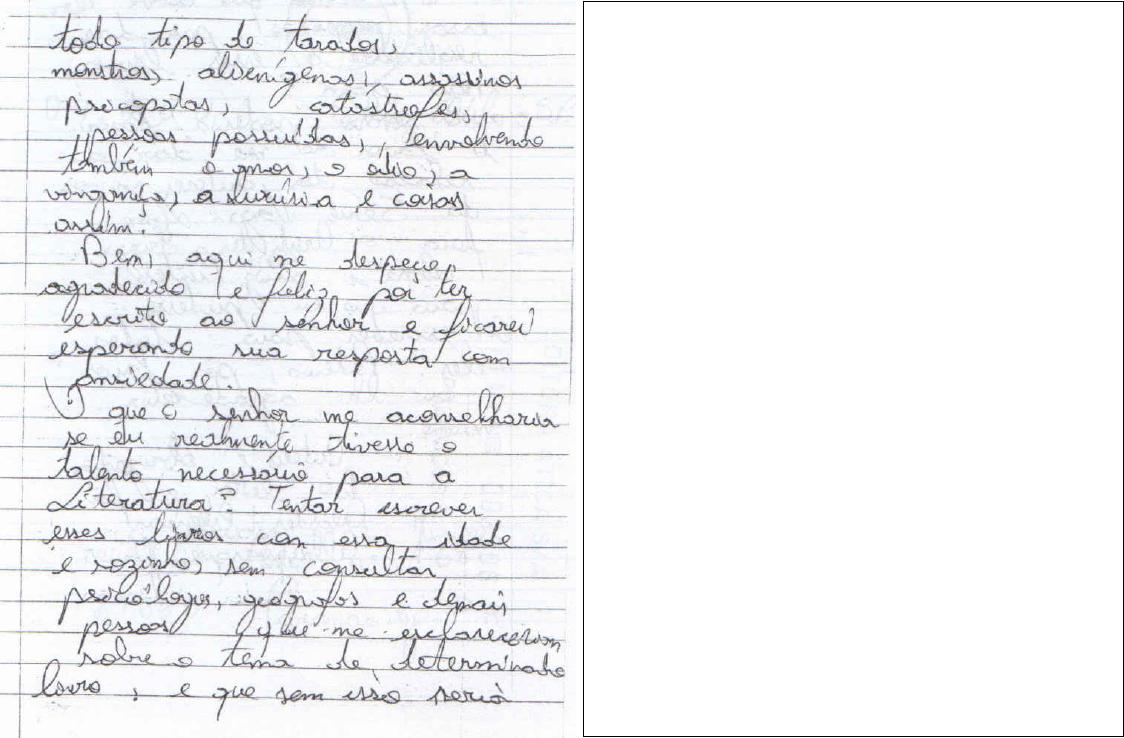 todo tipo de tarados,
monstros, alienígenas, assassinos
psicopatas, catástrofes,
pessoas possuídas, envolvendo
também o amor, o ódio, a
vingança, a luxúria e coisas
assim!
Bem, aqui me despeço,
agradecido e feliz por ter
escrito ao senhor e ficarei
esperando sua resposta com
ansiedade.
O que o senhor me aconselharia
se eu realmente tivesse o
talento necessário para a
Literatura? Tentar escrever
esses livros com essa idade
e sozinho, sem consultar
psicólogos, geógrafos e demais
pessoas que me esclareceram
sobre o tema de determinado
livro, e que sem isso seria